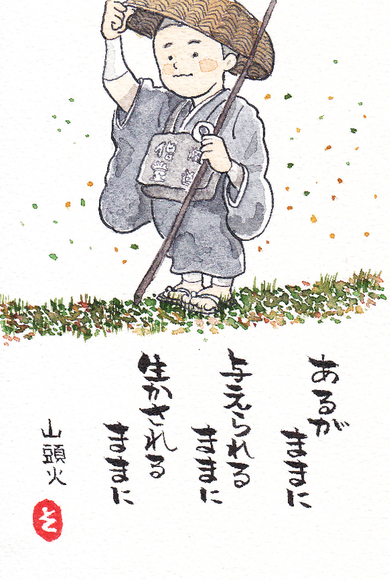 あるが
ままに
与えられる
ままに
生かされる
ままに
山頭火
そ